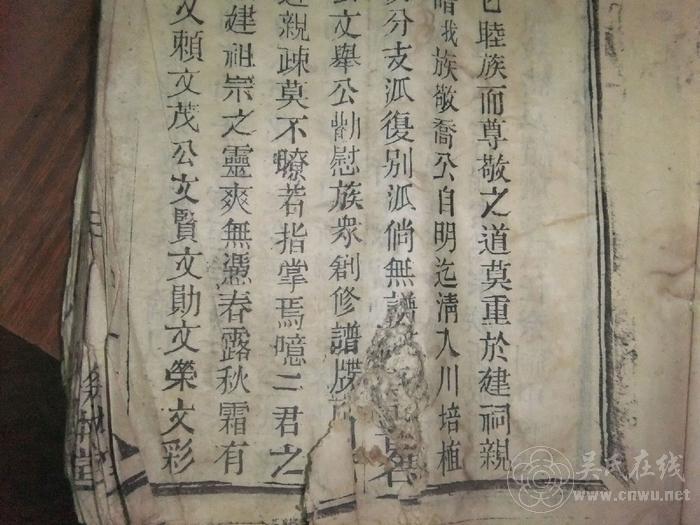 睦族而尊敬之道莫重於建祠親
我族敬喬公自明迄清入川培植
分支派復別派倘無譜
公文舉公勸慰族衆創修譜牒
親疎莫不瞭若指掌焉噫二君之
建祖宗之靈爽無憑春露秋霜有
文賴文茂公文賢文勛文榮文彩
吴氏在线
www.cnwu.net